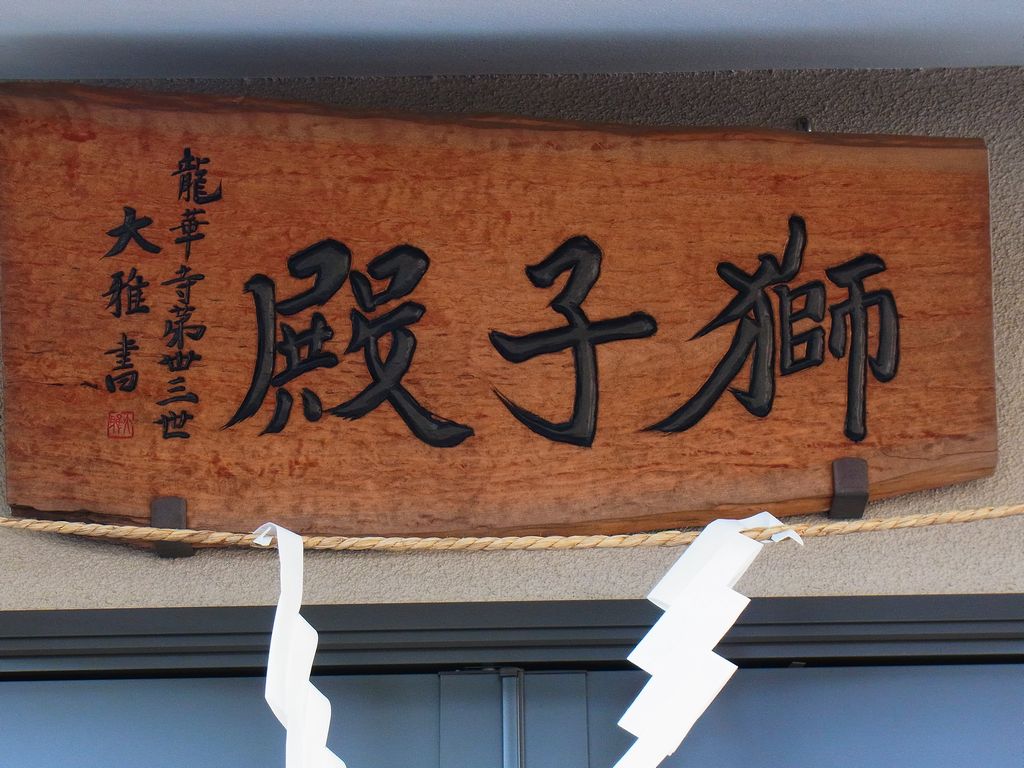 獅子殿
龍華寺第丗三世
大雅書